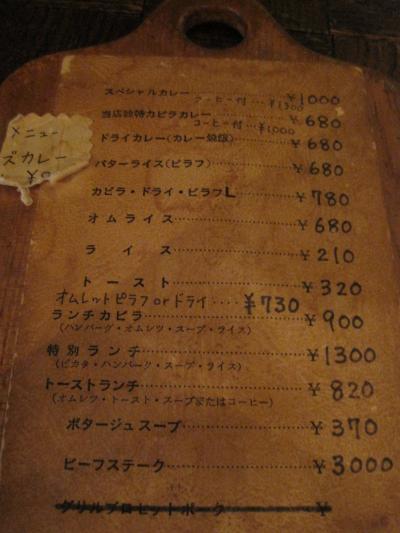 スペシャルカレー ¥1000
コーヒー付…¥1300
当店特カビラカレー ¥680
コーヒー付…¥1000
ドライカレー(カレー焼飯) ¥680
バターライス(ピラフ) ¥680
カビラ・ドライ・ピラフL ¥780
オムライス ¥680
ライス ¥210
トースト ¥320
オムレットピラフorドライ…¥730
ランチカビラ ¥900
(ハンバーグ・オムレツ・スープ・ライス)
特別ランチ ¥1300
(ピカタ・ハンバーグ・スープ・ライス)
トーストランチ ¥820
(オムレツ・トースト・スープまたはコーヒー)
ポタージュスープ ¥370
ビーフステーク ¥3000
グリルプロセットポーク ¥
メニュー
ズカレー
¥